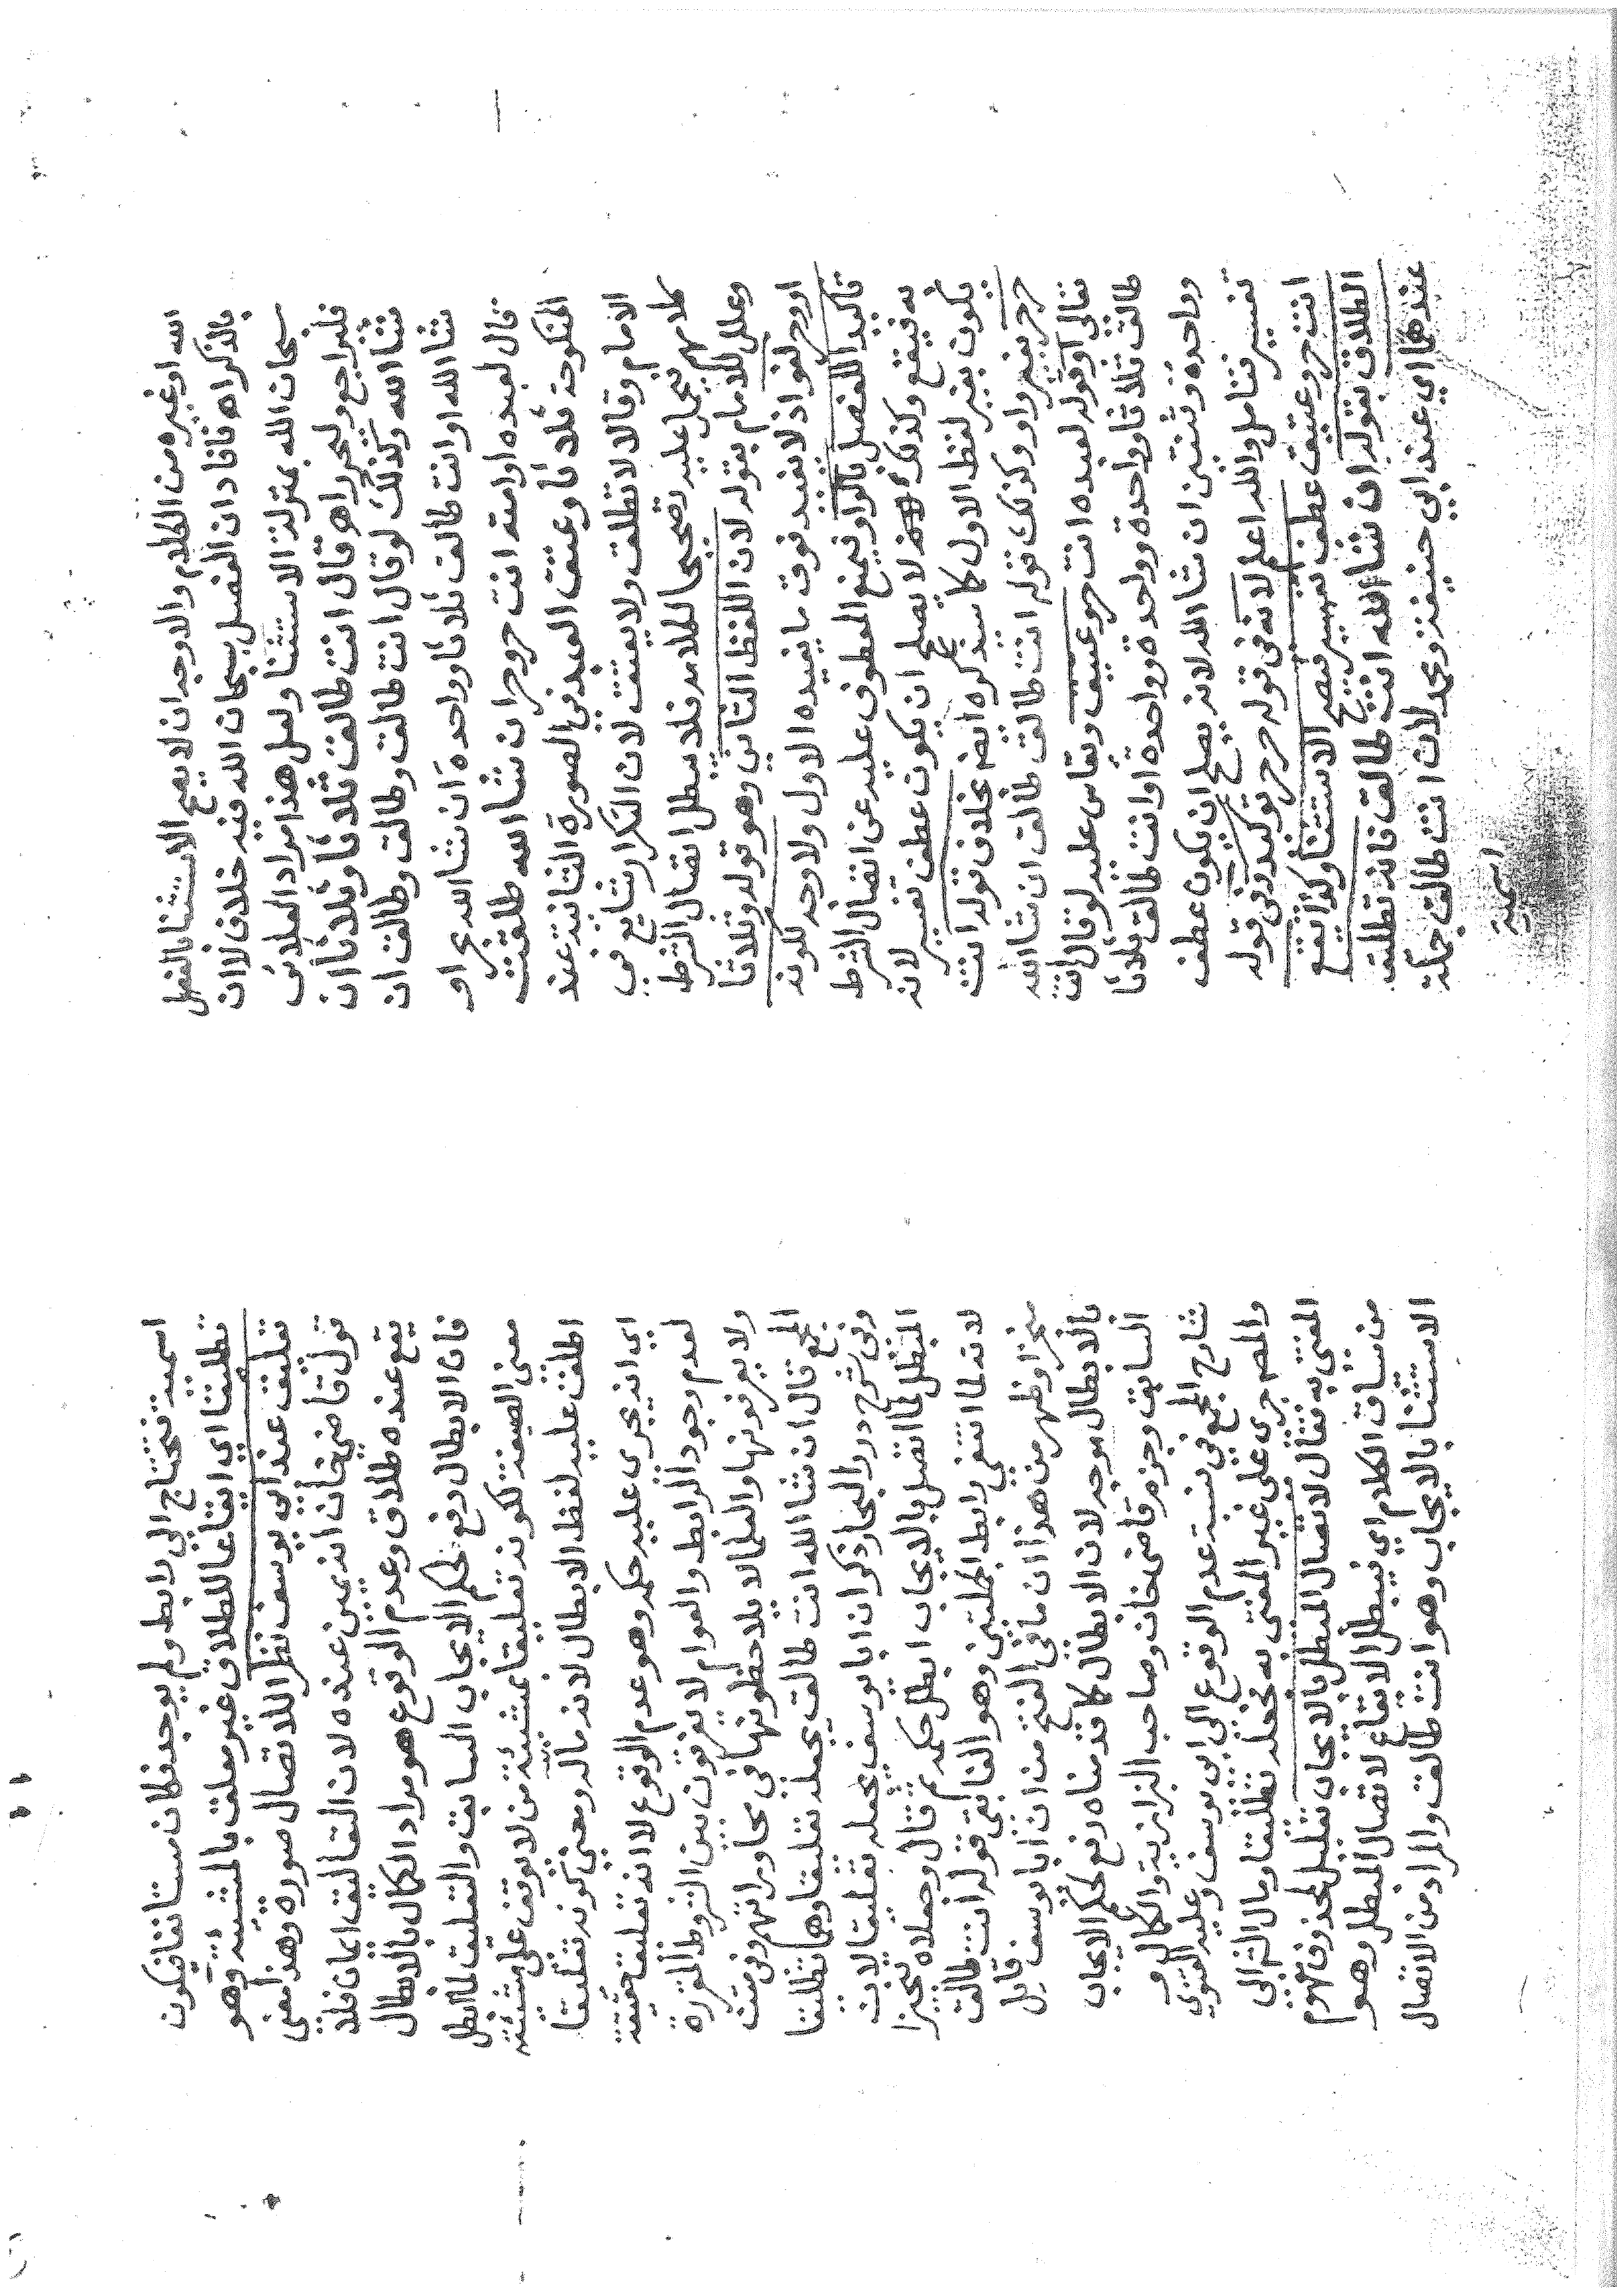 الله او غيره من الكلام والاوجه ان لا يصح الاستثنا بالفصل
بالذكر اه فافاد ان الفصل بسبحان الله فيه خلاف لا ان
سبحان الله بمنزلة الاستثنا ولعل هذا مراد العلائ
فليراجع وليحرر اه وقال انت طالق ثلاثا وثلاثا ان
شا الله وكذلك لو قال انت طالق وطالق وطالق ان
شا الله او انت طالق ثلاثا وواحدة ان شا الله او
قال لعبده او امته انت حر وحر ان شا الله طلقت
المنكوحة ثلاثا وعتق العبد في الصورة الثانية عند
الامام وقالا لا تطلق ولا يعتق لان التكرار شايع في
كلامهم فيحمل عليه تصحيحا للكلام فلا يبطل اتصال الشرط
وعلل للامام بقوله لان اللفظ الثاني وهو قوله وثلاثا
او وحر لغو اذ لا يفيد فوق ما يفيده الاول ولا وجه لكونه
تاكيدا للفصل بالواو فيمنع المعطوف عليه عن اتصال الشرط
به فيقع وكذلك لا يصلح ان يكون عطف تفسير لانه
يكون بغير لفظ الاول كما سيذكره المص بخلاف قوله انت
حر حر بغير واو وكذلك قوله انت طالق طالق ان شا الله
تعالى او قوله لعبده انت حر وعتيق وتقاس عليه لو قال انت
طالق ثلاثا وواحدة وواحدة وواحدة او انت طالق ثلاثا
وواحدة وثنتين ان شا الله لانه يصلح ان يكون عطف
تفسير فتامل والله اعلم لانه في قوله حر حر توكيد وفي قوله
انت حر وعتيق عطف تفسير فيصح الاستثنا وكذا يقع
الطلاق بقوله ان شا الله انت طالق فانه تطلق
عندهما اي عند ابي حنيفة ومحمد لان انت طالق جملة
اسمية
اسمية تحتاج الى رابط ولم يوجد فكان مستانفا فيكون
تطليقا اي ايقاعا للطلاق غير معلق بالمشيئة وهو
تعليق عند ابي يوسف نظر اللاتصال صورة وهذا معنى
قول قاضي خان انه يمين عنده لان التعاليق ايمان فلا
يقع عنده طلاق وعدم الوقوع هو مراد الكمال بالابطال
فان الابطال رفع لحكم الايجاب السابق والتعليق لما ابطل
معنى الصيغة لكونه تعليقا بمشيئة من لا يوقف على مشيئته
اطلق عليه لفظ الابطال لانه ماله ومعنى كونه تعليقا
اي انه يجري عليه حكمه وهو عدم الوقوع لا انه تعليق حقيقة
لعدم وجود الرابط والعوام لا يفرقون بين الشروط المقررة
ولا يعرفونها والعلما لا يلاحظونها في محاوراتهم وفي متن
المجمع قال ان شا الله انت طالق يجعله تعليقا وهما تطليقا
وفي شرح درر البحار ذكر ان ابا يوسف يجعله تعليقا لان
المبطل لما اتصل بالايجاب ابطل حكمه ثم قال وجعلاه تنجيزا
لانه لما انتفى رابط الجملتين وهو الفا بقى قوله انت طالق
منجزا وظهر من هذا ان ما في الفتح من ان ابا يوسف قايل
بالابطال موجه لان الابطال كما قدمناه رفع لحكم الايجاب
السابق وجزم قاضي خان وصاحب البزازية والكمال و
شارح المجمع في نسبة عدم الوقوع الى ابي يوسف وعليه الفتوى
والمص جرى على غير المفتى به بجعله تطليقا ومال الشرالى
المفتى به فقال لاتصال المبطل بالايجاب تقليل لمحذوف مفهوم
من سياق الكلام اي فيبطل الايقاع لاتصال المبطل وهو
الاستثنا بالايجاب وهو انت طالق والمراد من الاتصال